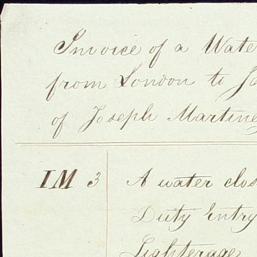 Invoice of a Wate
from London to Ja
of Joseph Martine
IM 3 A water clos
Duty Entry
Lighterage